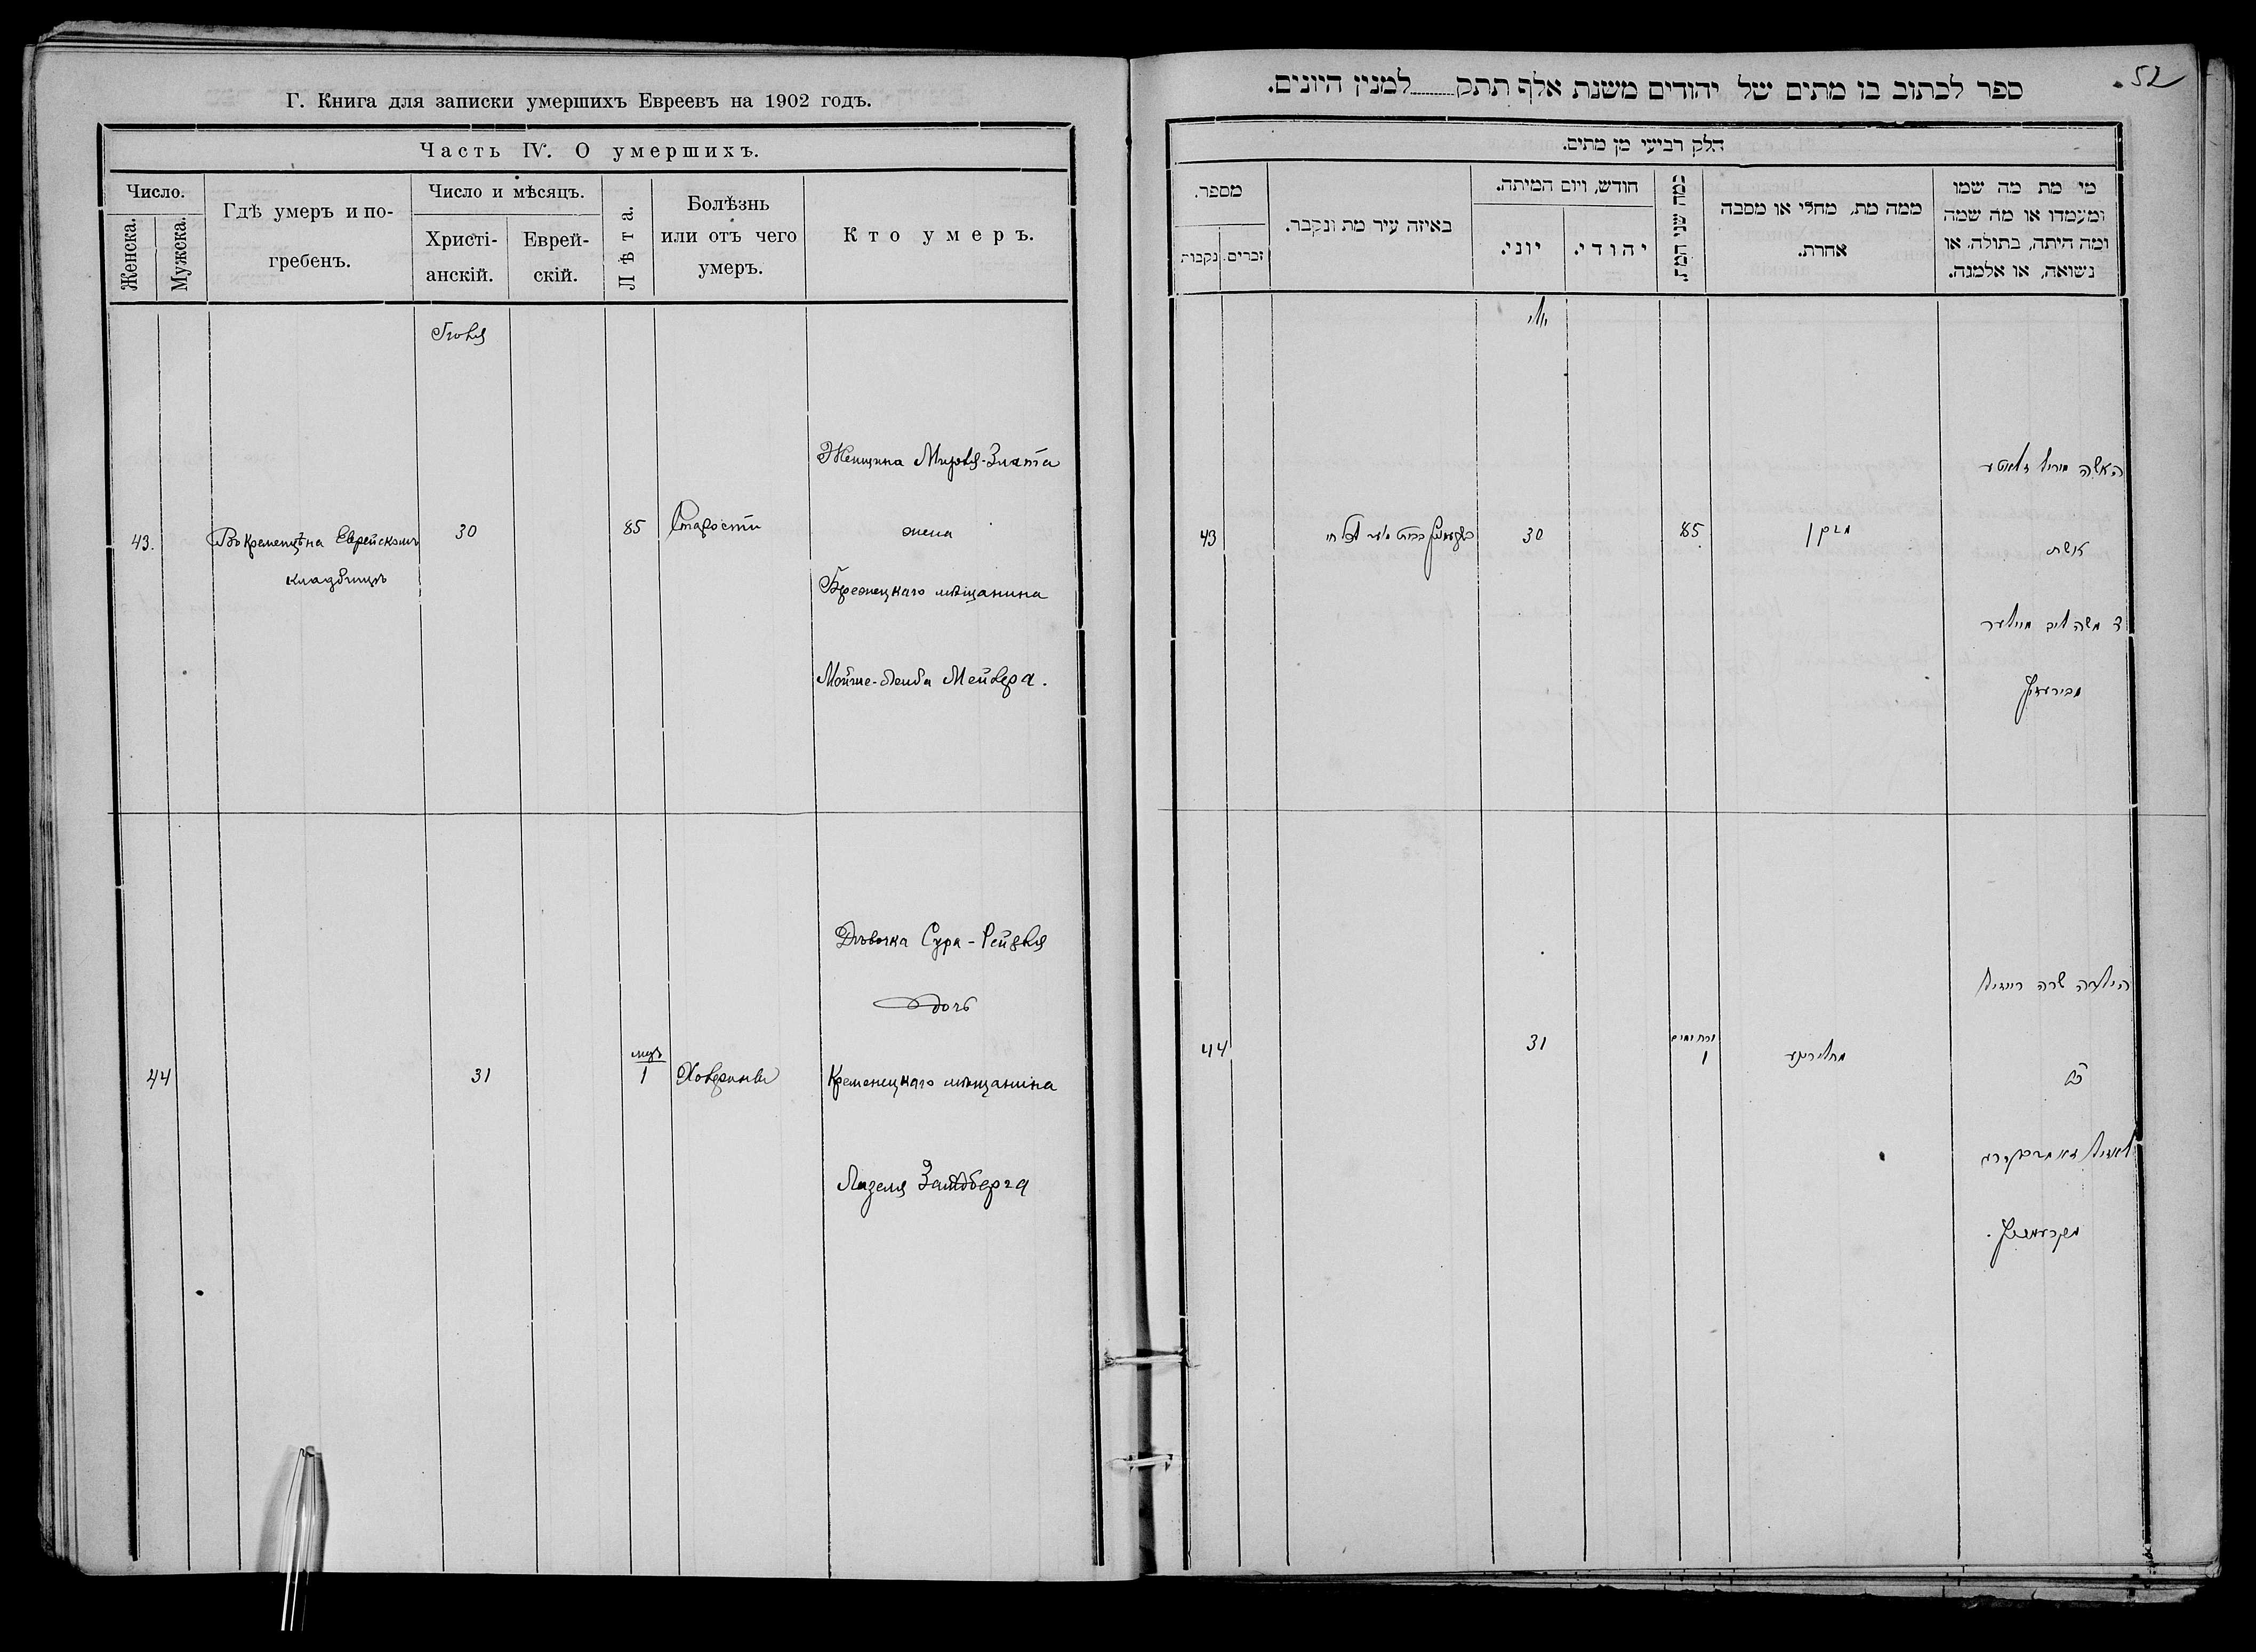 Г. Книга для записки умершихъ Евреевъ на 1902 годъ.
Часть IV. О умершихъ.
Число.
Женска.
Мужска.
Гдѣ умеръ и по-
гребенъ.
Число и мѣсяцъ.
Христі-
анскій.
Еврей-
скій.
Лѣта.
Болѣзнь
или отъ чего
умеръ.
Кто умеръ.
43.
Въ Кременцѣ на Еврейскомъ
кладбищѣ
30
85
Старости
Женщина Мирля-Злата
жена
мѣщанина
Мойше-Лейба Мейлера.
44
31
1
Дѣвочка Сура-Рейзля
дочь
Кременецкаго мѣщанина
Лазеля
52
ספר לכתוב בו מתים של יהודים משנת אלף תתק למנין היונים.
חלק רביעי מן מתים.
מספר.
נקבות
זכרים.
באיזה עיר מת ונקבר.
חודש, ויום המיתה.
יוני.
יהודי.
כמה שני המת.
ממה מת, מחלי או מסבה
אחרת.
מי מת מה שמו
ומעמדו או מה שמה
ומה היתה, בתולה או
נשואה, או אלמנה.
יולי
43
30
85
מזקן
האשה מירל זלאטע
אשת
משה ליב מיילער
44
31
1
הילדה שרה רייזיל